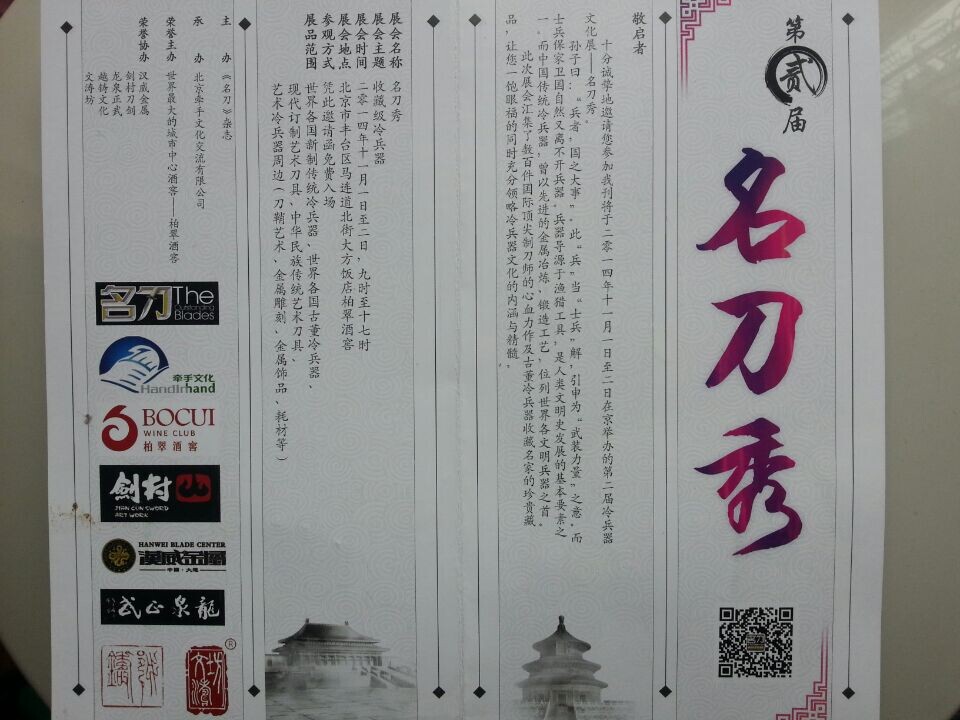 第贰届
名刀秀
敬启者
十分诚挚地邀请您参加我刊将于二零一四年十一月一日至二日在京举办的第二届冷兵器
文化展——名刀秀。
孙子曰：“兵者，国之大事”。此“兵”当“士兵”解，引申为“武装力量”之意。而
士兵保家卫国自然又离不开兵器。兵器导源于渔猎工具，是人类文明史发展的基本要素之
一。而中国传统冷兵器，曾以先进的金属冶炼、锻造工艺，位列世界各文明兵器之首。
此次展会汇集了数百件国际顶尖制刀师的心血力作及古董冷兵器收藏名家的珍贵藏
品，让您一饱眼福的同时充分领略冷兵器文化的内涵与精髓。
展会名称 名刀秀
展会主题 收藏级冷兵器
展会时间 二零一四年十一月一日至二日，九时至十七时
展会地点 北京市丰台区马连道北街大方饭店柏翠酒窖
参观方式 凭此邀请函免费入场
展品范围 世界各国新制传统冷兵器、世界各国古董冷兵器、
现代订制艺术刀具、中华民族传统艺术刀具、
艺术冷兵器周边（刀鞘艺术、金属雕刻、金属饰品、耗材等）
主办 《名刀》杂志
承办 北京牵手文化交流有限公司
荣誉主办 世界最大的城市中心酒窖——柏翠酒窖
荣誉协办 汉威金属
剑村刀剑
龙泉正武
越铸文化
文涛坊
名刀 The Outstanding Blades
牵手文化
HandInhand
BOCUI
WINE CLUB
柏翠酒窖
劍村
JIAN CUN SWORD
ART WORK
HANWEI BLADE CENTER
漢威金屬
中國·大連
武正泉龍